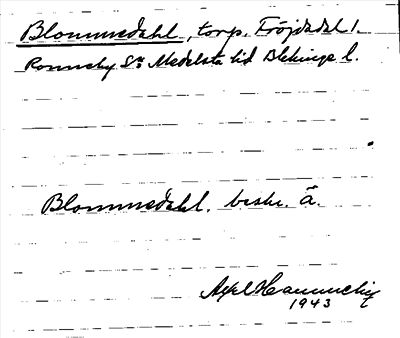 Blommedahl, torp. Fröjdadal 1.
Ronneby Sn Medelsta hd Blekinge l.
Blommedahl. beskr. å.
Axel
1943